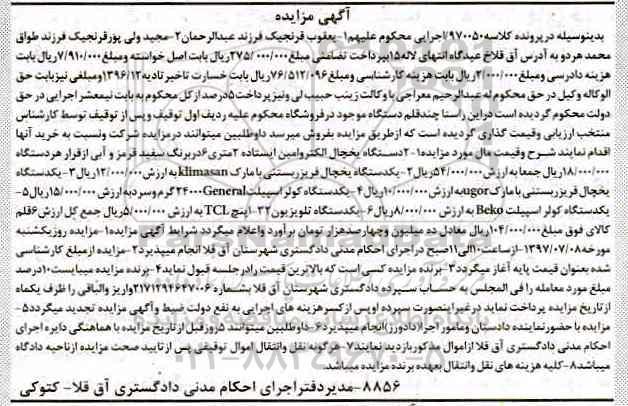 آگهی مزایده
بدینوسیله در پرونده کلاسه ۹۷۰۰۵۰/اجرایی محکوم علیهم۱-یعقوب قرنجیک فرزند عبدالرحمان۲-مجید ولی پورقرنجیک فرزند طواق
محمد هر دو به آدرس آق قلاخ عیدگاه انتهای لاله۱۵بپرداخت تضامنی مبلغ۲۷۵/۰۰۰/۰۰۰ریال بابت اصل خواسته ومبلغ۷/۹۱۰/۰۰۰ریال بابت
هزینه دادرسی ومبلغ۲/۰۰۰/۰۰۰ریال بابت هزینه کارشناسی ومبلغ۷۶/۵۱۲/۰۹۶ریال بابت خسارت تاخیر تادیه۱۳۹۶/۱۲ومبلغی نیزبابت حق
الوکاله وکیل در حق محکوم له عبدالرحیم معراجی با وکالت زینب حبیب لی ونیز پرداخت۵درصد از کل محکوم به بابت نیمعشر اجرایی در حق
دولت محکوم گردیده است در این راستا چندقلم دستگاه موجود در فروشگاه محکوم علیه ردیف اول توقیف وپس از توقیف توسط کارشناس
منتخب ارزیابی وقیمت گذاری گردیده است که از طریق مزایده بفروش میرسد داوطلبین میتوانند در مزایده شرکت ونسبت به خرید آنها
اقدام نمایند شرح وقیمت مال مورد مزایده۱-۲دستگاه یخچال الکتروامین ایستاده ۲متری۶دربرنگ سفید قرمز و آبی ازقرار هر دستگاه
۱۸/۰۰۰/۰۰۰ریال جمعا به ارزش۵۴/۰۰۰/۰۰۰ریال۲-یکدستگاه یخچال فریزر بستنی با مارکklimasanبه ارزش۱۲/۰۰۰/۰۰۰ریال۳-یکدستگاه
یخچال فریزر بستنی با مارکugurبه ارزش۱۰/۰۰۰/۰۰۰ریال۴-یکدستگاه کولر اسپیلتGeneral۲۴۰۰۰گرم وسرد به ارزش۱۵/۰۰۰/۰۰۰ریال۵-
یکدستگاه کولر اسپیلت Bekoبه ارزش۸/۰۰۰/۰۰۰ریال۶-یکدستگاه تلویزیون۳۲-اینچTCLبه ارزش۵/۰۰۰/۰۰۰ریال جمع کل ارزش۶قلم
کالای فوق مبلغ۱۰۴/۰۰۰/۰۰۰ریال معادل ده میلیون وچهارصدهزار تومان برآورد واعلام میگردد شرایط آگهی مزایده۱-مزایده روزیکشنبه
مورخه۱۳۹۷/۰۷/۰۸-ازساعت۱۰الی۱۱صبح در اجرای احکام مدنی دادگستری شهرستان آق قلا انجام میپذیرد۲-مزایده از مبلغ کارشناسی
شده بعنوان قیمت پایه آغاز میگردد۳-برنده مزایده کسی است که بالاترین قیمت رادرجلسه قبول نماید۴-برنده مزایده میبایست۱۰درصد
مبلغ مورد معامله را فی المجلس به حساب سپرده دادگستری شهرستان آق قلا بشماره ۲۱۷۱۲۹۴۶۴۷۰۰۶واریز والباقی را ظرف یکماه
از تاریخ مزایده پرداخت نماید در غیر اینصورت سپرده اوپس از کسر هزینه های اجرایی به نفع دولت ضبط وآگهی مزایده تجدید میگردد۵-
مزایده با حضور نماینده دادستان ومامور اجرا(دادورز)انجام میپذیرد۶-داوطلبین میتوانند ۵روزقبل از تاریخ مزایده با هماهنگی دایره اجرای
احکام مدنی دادگستری آق قلا ازاموال مذکور بازدید نمایند۷-هرگونه نقل وانتقال اموال توقیفی پس از تایید صحت مزایده از ناحیه دادگاه
میباشد۸-کلیه هزینه های نقل وانتقال بعهده برنده مزایده میباشد.
۸۸۵۶-مدیر دفتر اجرای احکام مدنی دادگستری آق قلا- کتوکی